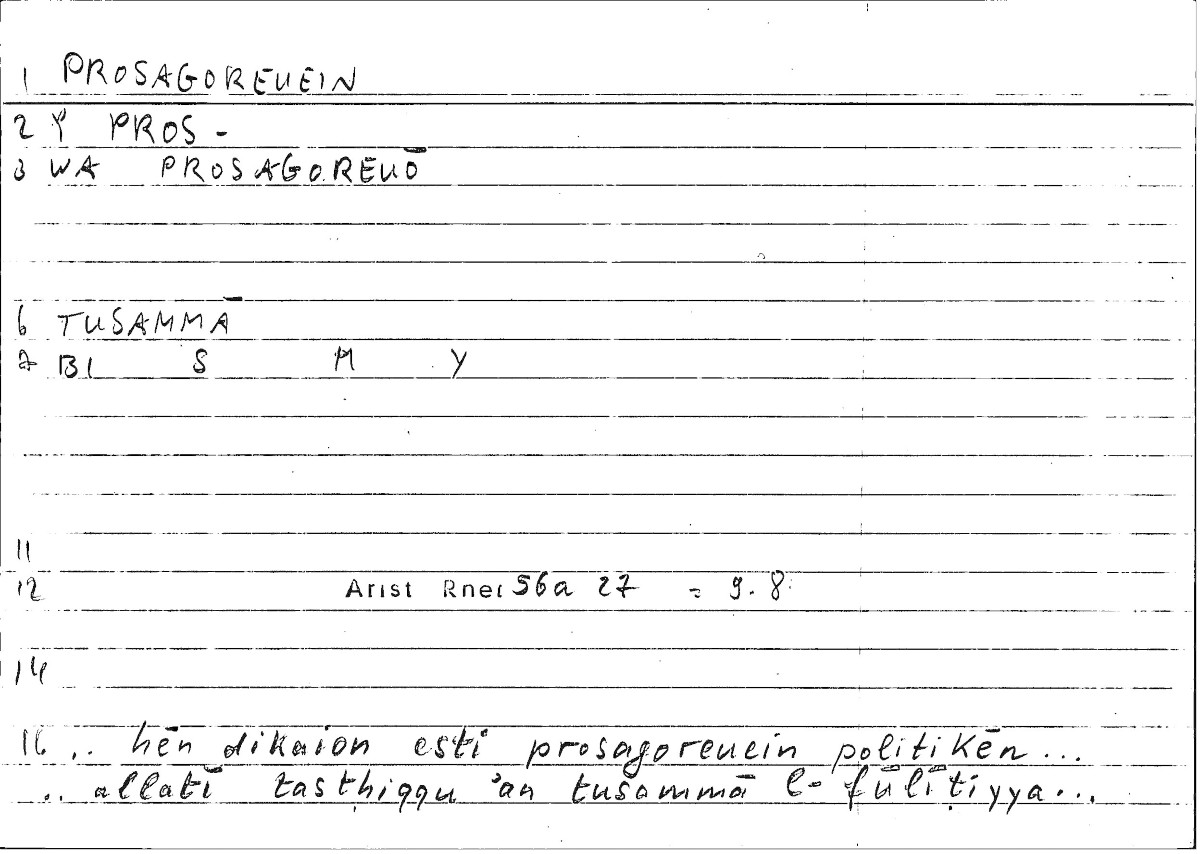 1 PROSAGOREUEIN
2 Y PROS -
3 WA PROSAGOREUŌ
6 TUSAMMĀ
7 BI S M Y
11
12 Arist Rhet 56a 27 = 9.8
14
16 .. hēn dikaion esti prosagoreuein politikēn...
.. allatī tastḥiqqu 'an tusammā l- fūlīṭiyya...